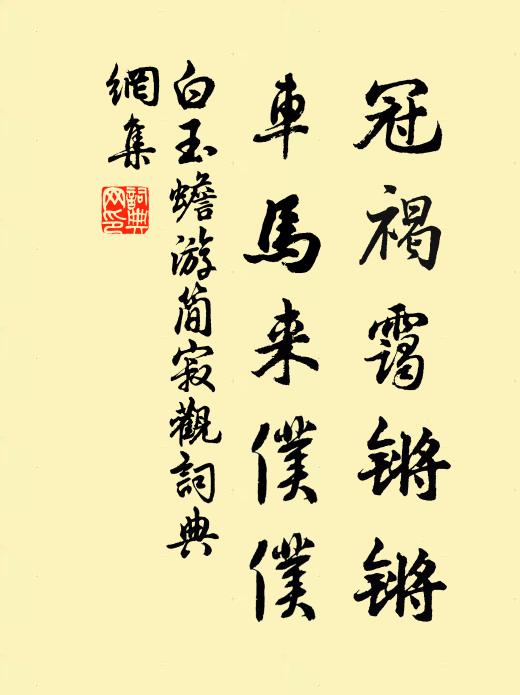 冠褐霭锵锵
車馬来僕僕
白玉蟾游简寂觀詞典
網集
詞典
网印